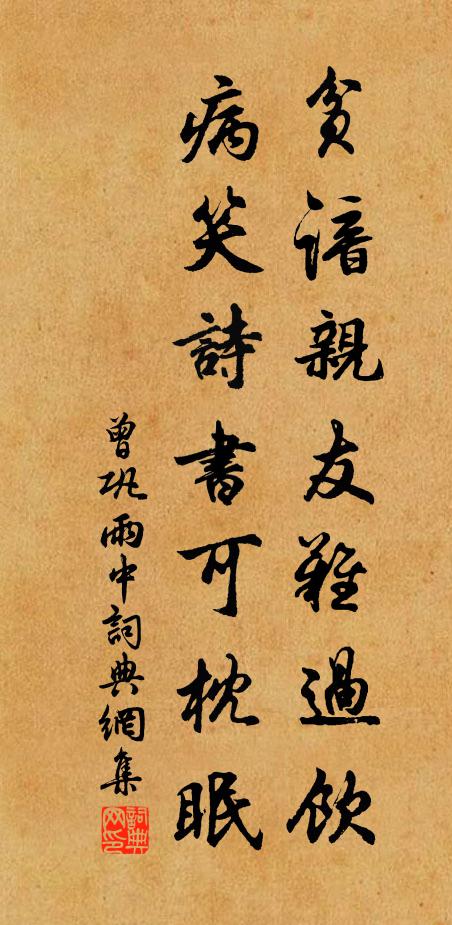 貧諳親友難過飲
病笑詩書可枕眠
曾巩雨中詞典網集
詞典网印